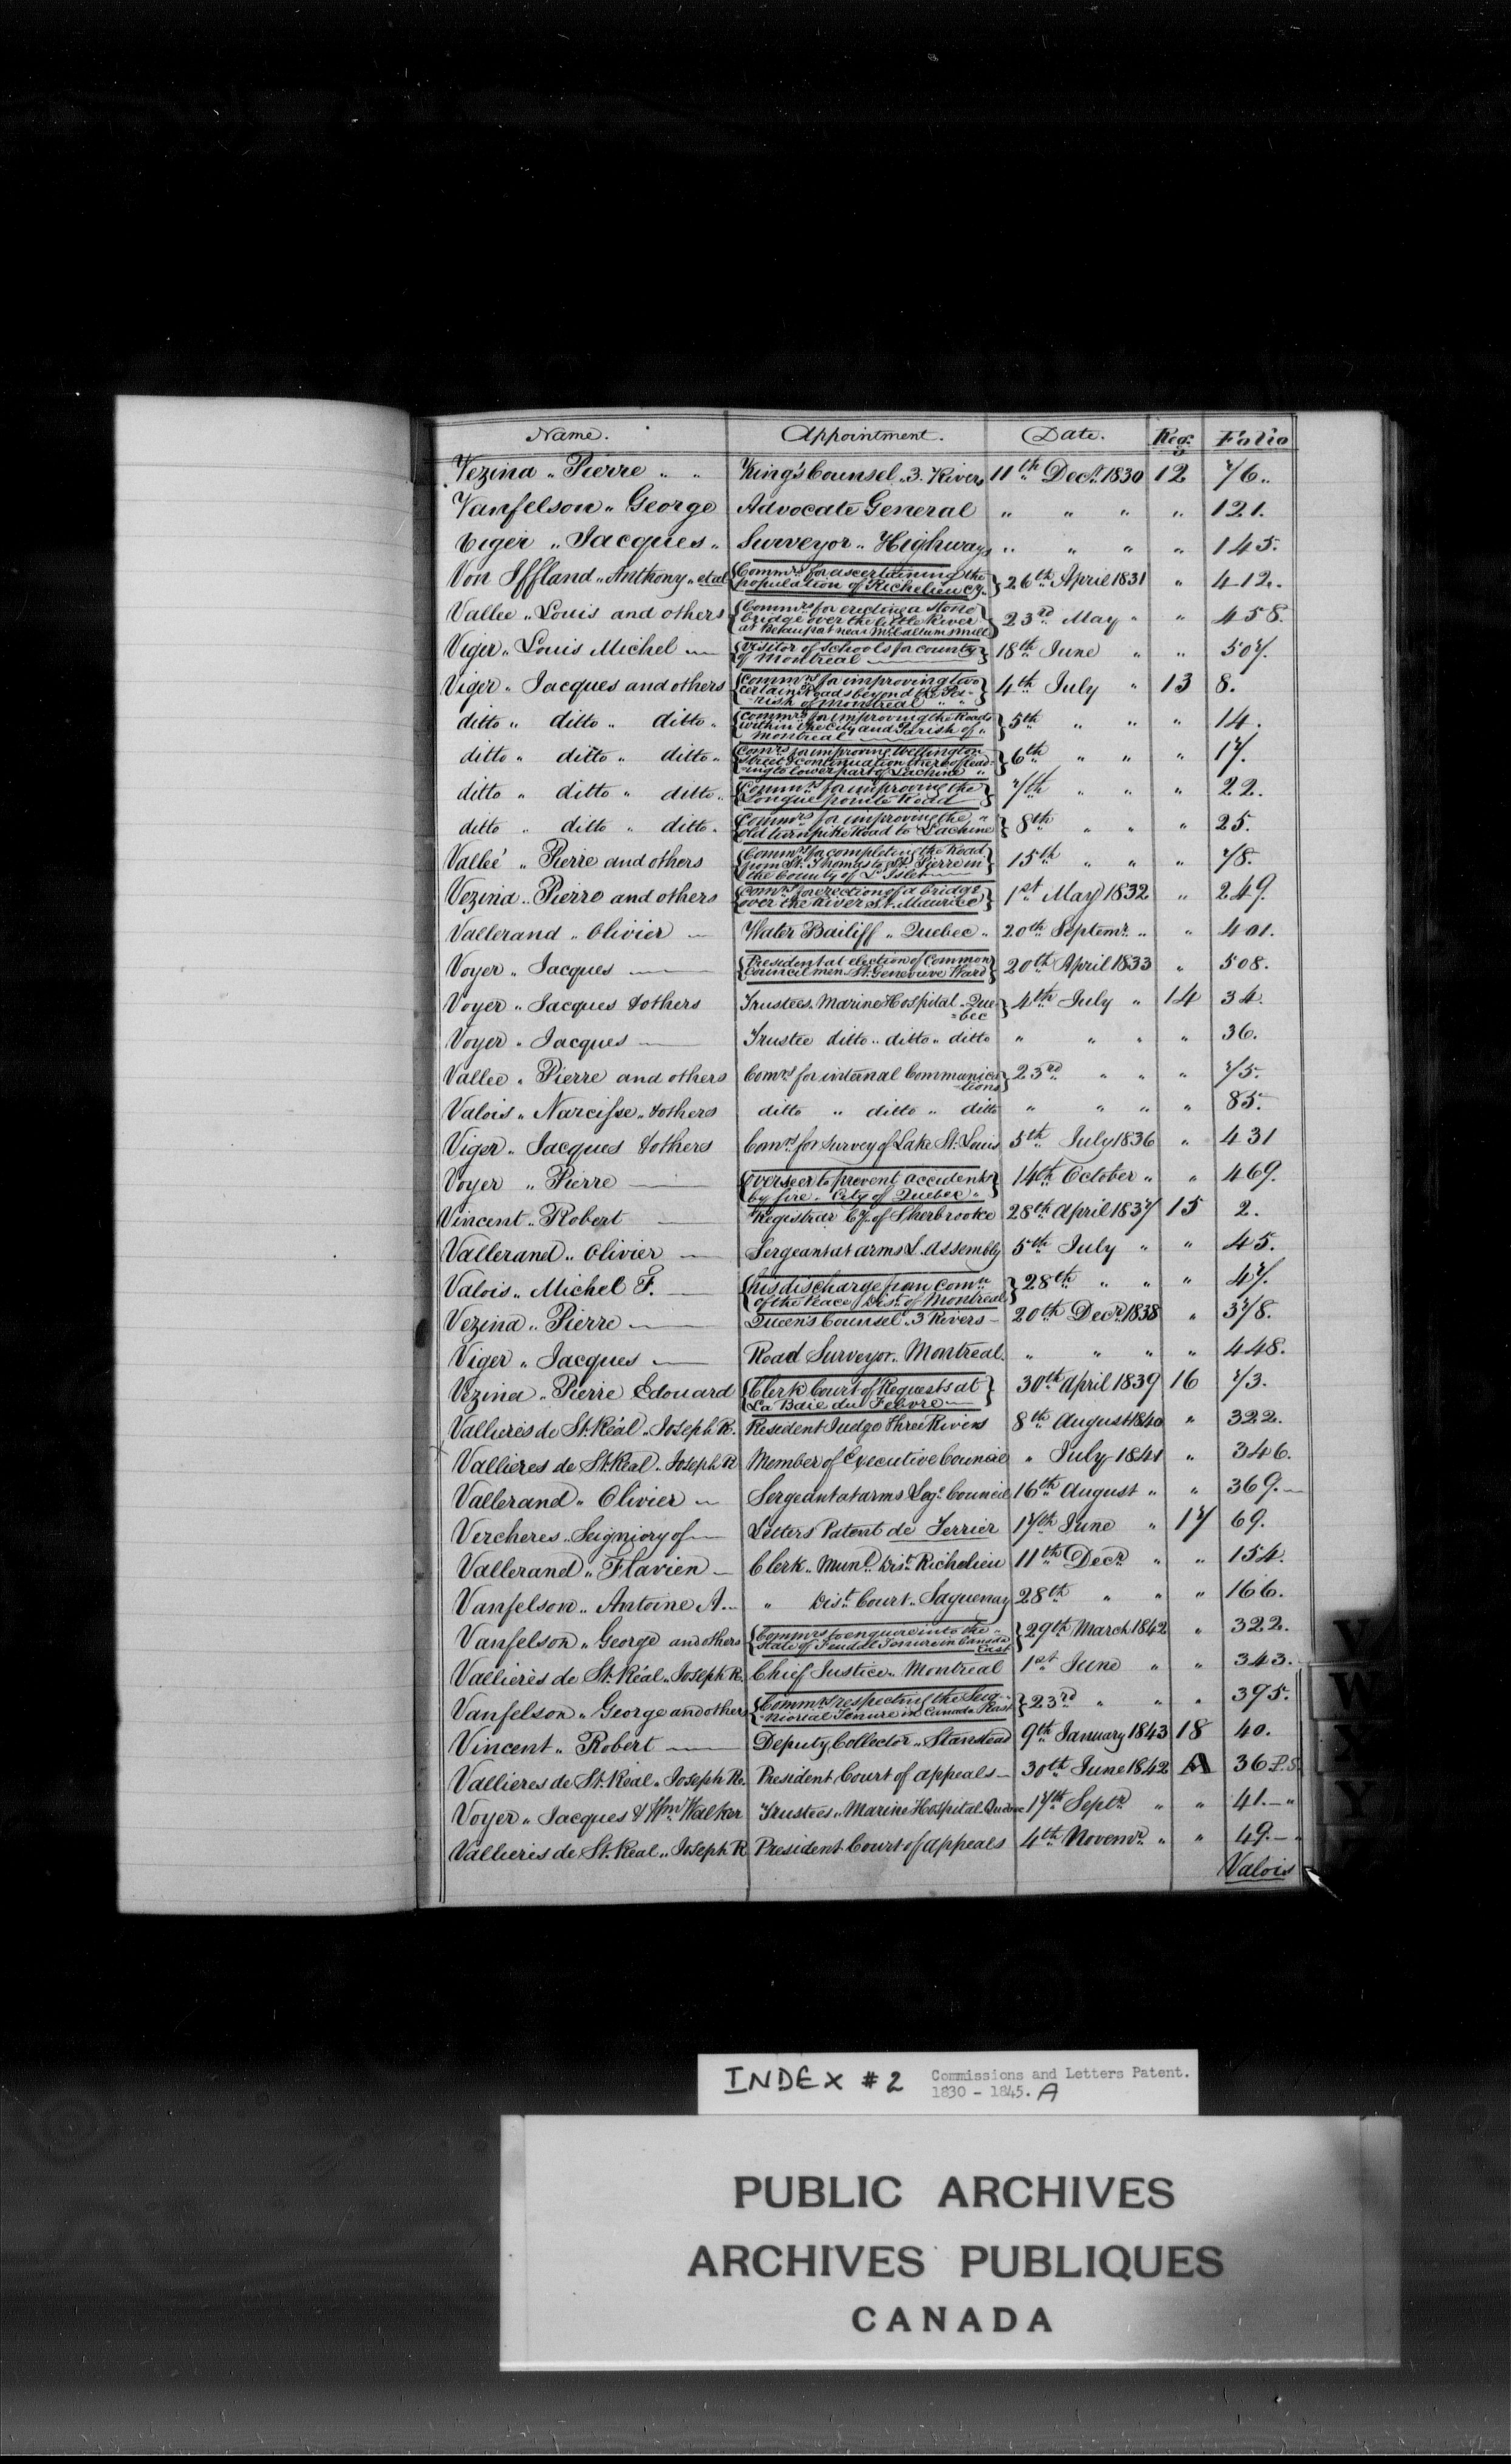 Name. Appointment. Date. Reg: Folio
Vezina „ Pierre „ „ King's Counsel „ 3. Rivers 11th Decr. 1830 12 76 „
Vanfelson „ George Advocate General „ „ „ „ 121.
Viger „ Jacques „ Surveyor „ Highways „ „ „ „ 145.
Von Iffland „ Anthony „ et al {Commrs for ascertaining the
population of Richelieu Cy.} 26th April 1831 „ 412.
Vallee „ Louis and others {Commrs for erecting a stone
bridge over the little River
at Beauport near McCallums Mill} 23rd May „ „ 458.
Viger „ Louis Michel — {Visitor of Schools for County
of Montreal —} 18th June „ „ 507.
Viger „ Jacques and others {Commrs for improving two
certain Roads beyond the Pa-
-rish of Montreal „ „} 4th July „ 13 8.
ditto „ ditto „ ditto „ {Commrs for improving the Roads
within the City and Parish of „
Montreal —} 5th „ „ „ 14.
ditto „ ditto „ ditto „ {Comrs for improving Wellington
Street & continuation thereof lead-
-ing to lower part of Lachine „} 6th „ „ „ 17.
ditto „ ditto „ ditto „ {Commrs for improving the
Longue pointe Road} 7th „ „ „ 22.
ditto „ ditto „ ditto „ {Commrs for improving the „
old turnpike Road to Lachine} 8th „ „ „ 25.
Valleé „ Pierre and others {Commrs for completing the Road
from St. Thomas to St. Pierre in
the County of L'Islet —} 15th „ „ „ 78.
Vezina „ Pierre and others {Comrs for erection of a bridge
over the River St. Maurice} 1st May 1832 „ 249.
Vallerand „ Olivier — Water Bailiff „ Quebec „ 20th Septemr. „ „ 401.
Voyer „ Jacques — {President at election of Common
Councilmen St. Genevieve Ward} 20th April 1833 „ 508.
Voyer „ Jacques & others Trustees „ Marine Hospital „ Que
=bec} 4th July „ 14 34.
Voyer „ Jacques — Trustee ditto „ ditto „ ditto „ „ „ „ 36.
Vallee „ Pierre and others Comrs for internal Communica
-tions} 23rd „ „ „ 75.
Valois „ Narcisse „ & others ditto „ ditto „ ditto „ „ „ „ 85.
Viger „ Jacques & others Comrs for survey of Lake St. Louis 5th July 1836 „ 431
Voyer „ Pierre — {Overseer to prevent accidents
by fire „ City of Quebec „} 14th October „ „ 469.
Vincent „ Robert — Registrar Cy. of Sherbrooke 28th April 1837 15 2.
Vallerand „ Olivier — Sergeant at arms L. Assembly 5th July „ „ 45.
Valois „ Michel F. — {his discharge from Comn
of the Peace Dist. of Montreal} 28th „ „ „ 47.
Vezina „ Pierre — Queen's Counsel „ 3 Rivers — 20th Decr. 1838 „ 378.
Viger „ Jacques — Road Surveyor „ Montreal. „ „ „ „ 448.
Vezina „ Pierre Edouard {Clerk Court of Requests at
La Baie du Febvre —} 30th April 1839 16 73.
Vallieres de St. Réal „ Joseph R. Resident Judge Three Rivers 8th August 1840 „ 322.
Vallieres de St. Réal „ Joseph R Member of Executive Council „ July 1841 „ 346.
Vallerand „ Olivier — Sergeant at arms Legve Council 16th August „ „ 369. —
Vercheres „ Seigniory of — Letters Patent de Terrier 17th June „ 17 69.
Vallerand „ Flavien — Clerk „ Munl. Dist. Richelieu 11th Decr „ „ 154.
Vanfelson „ Antoine A. — „ Dist. Court „ Saguenay 28th „ „ „ 166.
Vanfelson „ George and others {Commrs to enquire into the —
State of Feudal Tenure in Canada
East} 29th March 1842 „ 322.
Vallierès de St. Réal „ Joseph R. Chief Justice „ Montreal 1st June „ „ 343.
Vanfelson „ George and others {Commrs respecting the Seig-
-niorial Tenure in Canada East} 23rd „ „ „ 395.
Vincent „ Robert — Deputy Collector „ Stanstead 9th January 1843 18 40.
Vallieres de St. Réal „ Joseph R. President Court of appeals — 30th June 1842 A 36 P.S.
Voyer „ Jacques & Wm Walker Trustees „ Marine Hospital Quebec 17th Septr „ „ 41. — „
Vallieris de St. Réal „ Joseph R President Court of appeals 4th Novemr. „ „ 49. — „
Valois
V
W
X
Y
INDEX # 2 Commissions and Letters Patent.
1830 - 1845. A
PUBLIC ARCHIVES
ARCHIVES PUBLIQUES
CANADA